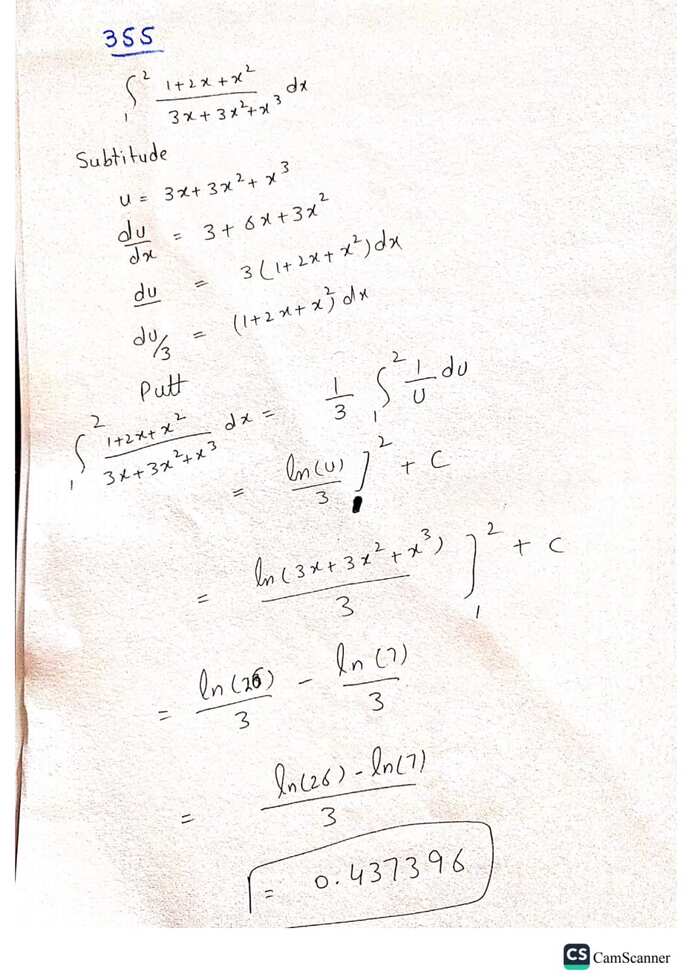 355
∫₁² (1+2x+x²)/(3x+3x²+x³) dx
Subtitude
u = 3x+3x²+x³
du/dx = 3+6x+3x²
du = 3(1+2x+x²)dx
du/3 = (1+2x+x²)dx
Putt
∫₁² (1+2x+x²)/(3x+3x²+x³) dx = 1/3 ∫₁² 1/u du
= ln(u)/3 ]² + C
= ln(3x+3x²+x³)/3 ]₁² + C
= ln(26)/3 - ln(7)/3
= (ln(26)-ln(7))/3
= 0.437396
CS CamScanner